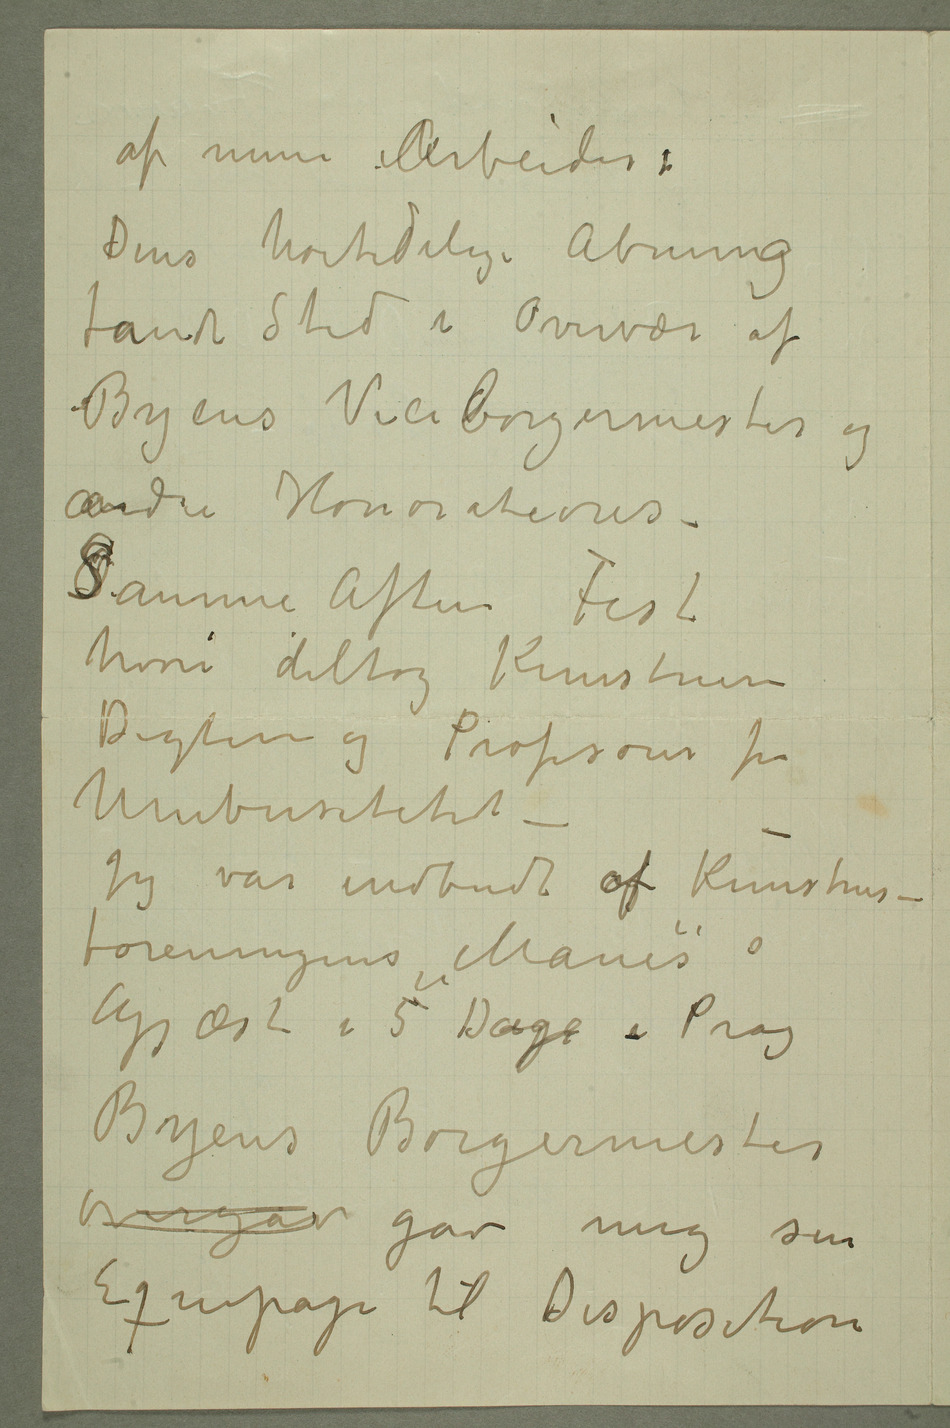 af mine Arbeider:
Dens høitidelige Abning
fandt Sted i Overvær af
Byens Viceborgermester og
andre Honoratiores –
Samme Aften Fest
hvori deltog Kunstnere
Digtere og Profesorer fra
Universitetet –
Jeg var indbudt af Kunstner–
foreningens „Manes“
Gjæst i 5 Dage i Prag
Byens Borgermester
overgav gav mig sin
Equipage til Disposition